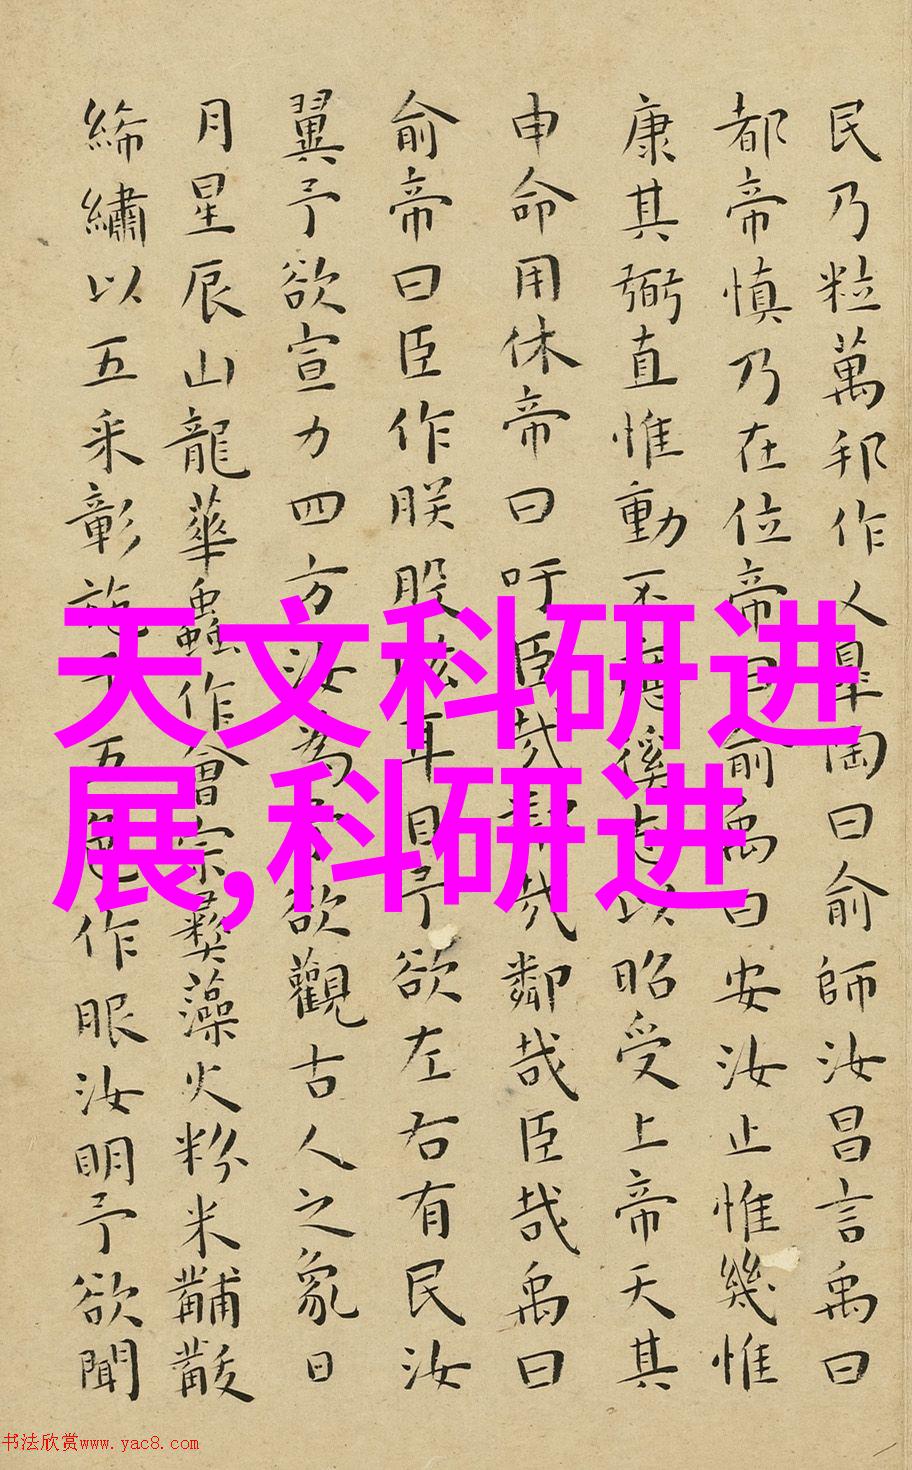 民乃粒萬邦作乂皋陶曰俞師汝昌言禹曰
都帝慎乃在位帝曰俞禹曰安汝止惟幾惟
康其弼直惟動不應徯志以昭受上帝天其
申命用休帝曰吁臣哉鄰哉鄰哉臣哉禹曰
俞帝曰臣作朕股肱耳目予欲左右有民汝
翼予欲宣力四方汝為予欲觀古人之象日
月星辰山龍華蟲作會宗彝藻火粉米黼黻
絺繡以五采彰施于五色作服汝明予欲聞
天文科研进
展,科研进
书法欣赏www.yac8.com